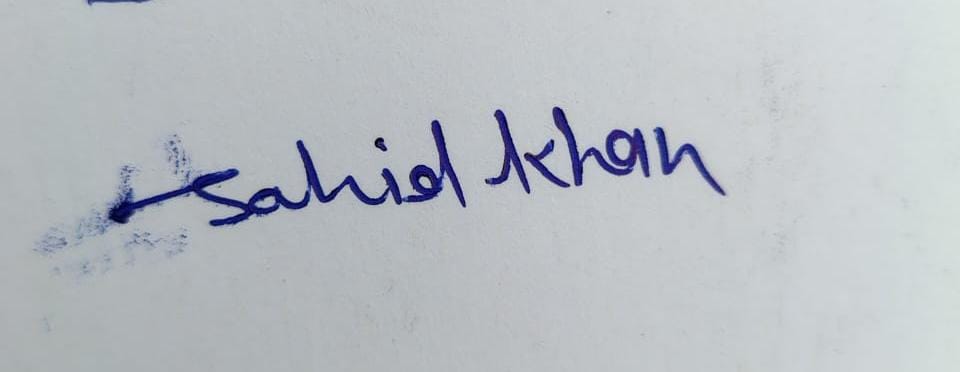 Sahid Khan